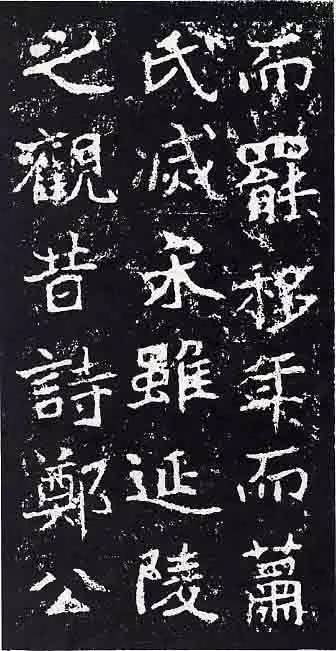 而罷移年而蕭
氏滅永雖延陵
之觀昔詩鄭公